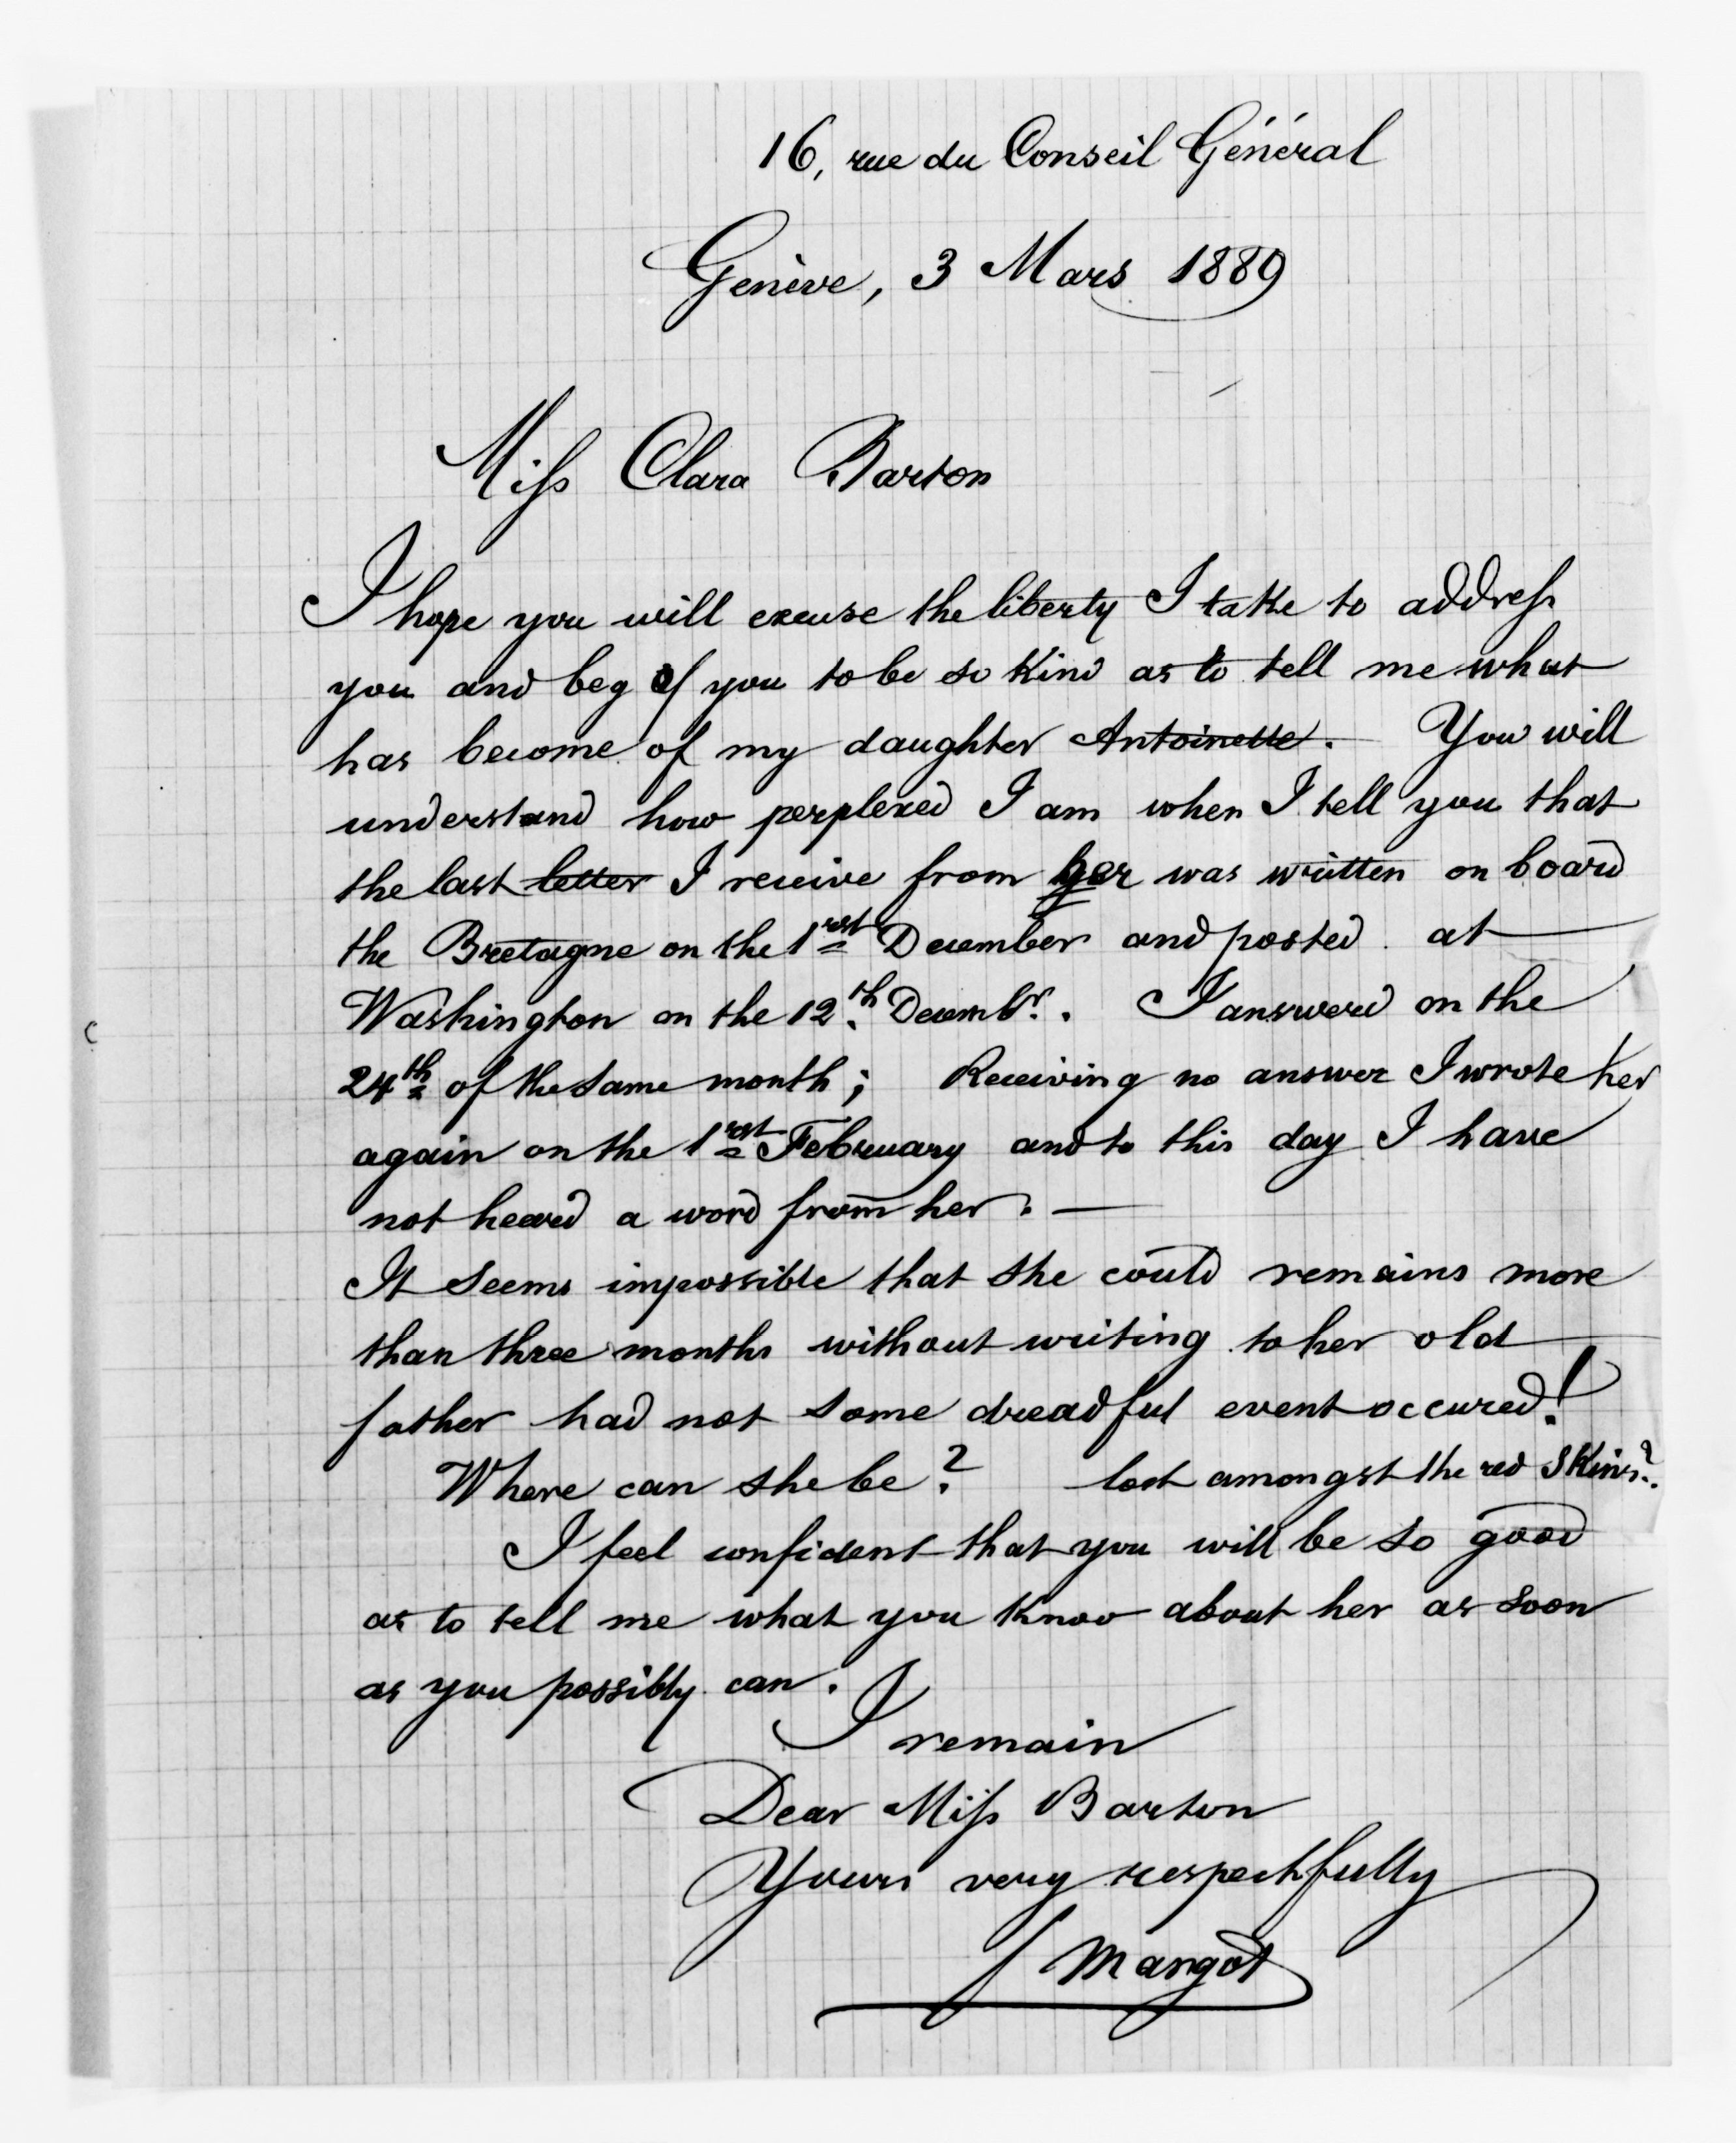 16, rue du Conseil Général
Genève, 3 Mars 1889
Miss Clara Barton
I hope you will excuse the liberty I take to address
you and beg of you to be so kind as to tell me what
has become of my daughter Antoinette. You will
understand how perplexed I am when I tell you that
the last letter I receive from her was written on board
the Bretagne on the 1rst December and posted at
Washington on the 12th Decembr. I answered on the
24th of the same month; Receiving no answer I wrote her
again on the 1rst February and to this day I have
not heard a word from her. —
It seems impossible that she could remains more
than three months without writing to her old
father had not some dreadful event occured!
Where can she be? lost amongst the red skins?
I feel confident that you will be so good
as to tell me what you know about her as soon
as you possibly can.
I remain
Dear Miss Barton
Yours very respectfully
J Margot